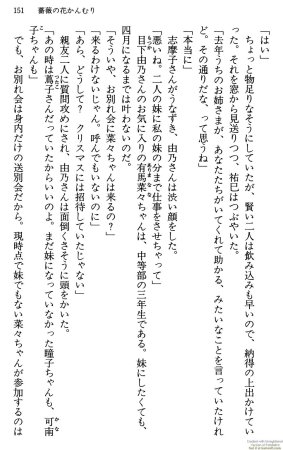 151　薔薇の花かんむり
「はい」
ちょっと物足りなそうにしていたが、賢い二人は飲み込みも早いので、納得の上出かけてい
った。それを窓から見送りつつ、祐巳はつぶやいた。
「去年うちのお姉さまが、あなたたちがいてくれて助かる、みたいなことを言っていたけれ
ど。その通りだな、って思うね」
「本当に」
志摩子さんがうなずき、由乃さんは渋い顔をした。
「悪いね。二人の妹に私の妹の分まで仕事をさせちゃって」
目下由乃さんのお気に入りの有馬菜々ちゃんは、中等部の三年生である。妹にしたくても、
四月になるまでは叶わないのだ。
「そういや、お別れ会に菜々ちゃんは来るの?」
「来るわけないじゃん。呼んでもいないのに」
「あら、どうして? クリスマスには招待していたじゃない」
親友二人に質問攻めにされ、由乃さんは面倒くさそうに頭をかいた。
「あの時は蔦子さんだっていたからいいのよ。まだ妹になっていなかった瞳子ちゃんも、可南
子ちゃんも」
でも、お別れ会は身内だけの送別会だから。現時点で妹でもない菜々ちゃんが参加するのは